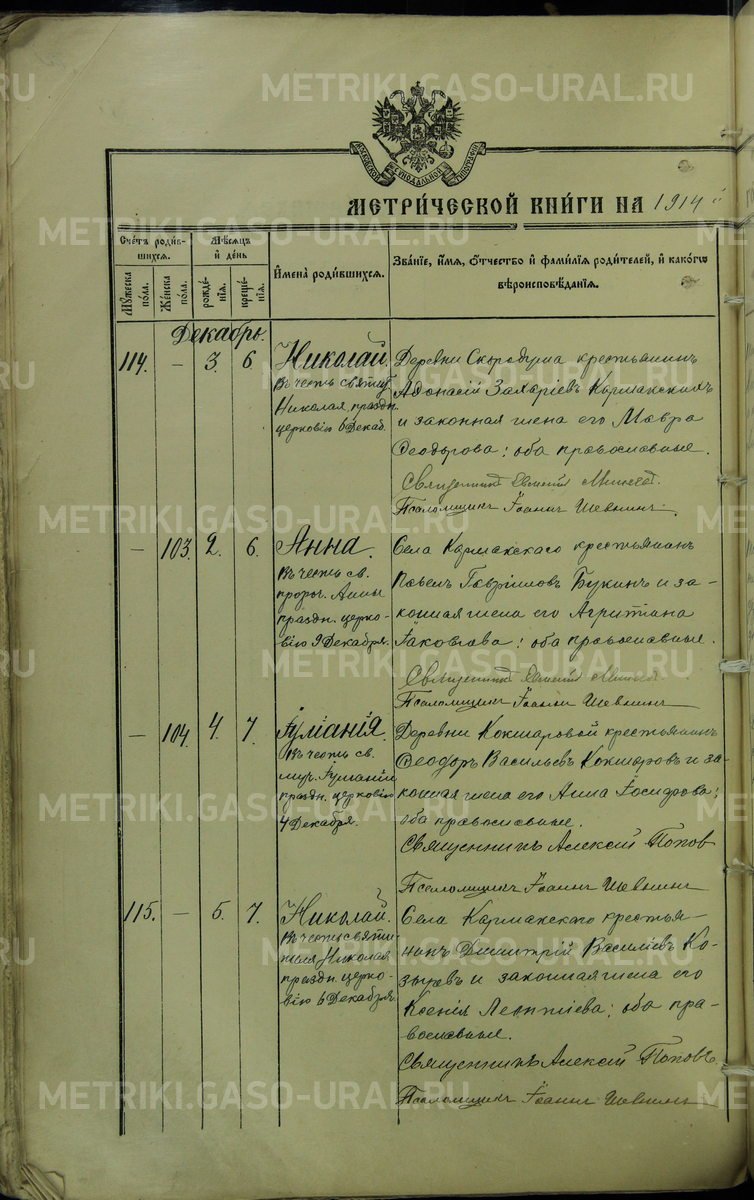 METRIKI.GASO-URAL.RU
МОСКОВСКОЙ СѴНОДАЛЬНОЙ ТИПОГРАФІИ
МЕТРИ́ЧЕСКОЙ КНИ́ГИ НА 1914 й
Сче́тъ роди́вшихся.
Му́жеска по́ла.
Же́нска по́ла.
Мѣ́сяцъ и҆ де́нь
рожде́нїя.
креще́нїя.
И҆мена̀ роди́вшихся.
Зва́нїе, и҆́мя, ѻ҆́тчество и҆ фами́лїя роди́телей, и҆ како́гѡ
вѣроисповѣ́данїя.
Декабрь.
114. – 3. 6 Николай.
Въ честь святит.
Николая, праздн.
церковію 6 Декаб.
Деревни Скородума крестьянинъ
Афонасій Захаріевъ Кармакскихъ
и законная жена его Мавра
Ѳеодорова; оба православные.
Священникъ
Псаломщикъ Іоаннъ Шевнинъ.
– 103. 2. 6. Анна.
Въ честь св.
пророч. Анны
праздн. церко-
вію 9 Декабря.
Села Кармакскаго крестьянинъ
Павелъ Гавріиловъ Букинъ и за-
конная жена его Агрипина
Іаковлева; оба православные.
Священникъ
Псаломщикъ Іоаннъ Шевнинъ
– 104. 4. 7. Іуліанія.
Въ честь св.
муч. Іуліаніи
праздн. церковію
4 Декабря.
Деревни Кокшаровой крестьянинъ
Ѳеодоръ Васильевъ Кокшаровъ и за-
конная жена его Анна Іосифова;
оба православные.
Священникъ Алексій Попов
Псаломщикъ Іоаннъ Шевнинъ
115. – 5. 7. Николай.
Въ честь святи-
теля Николая
праздн. церко-
вію 6 Декабря.
Села Кармакскаго крестья-
нинъ Димитрій Василіевъ Ко-
зыревъ и законная жена его
Ксенія Леонтіева; оба пра-
вославные.
Священникъ Алексій Поповъ.
Псаломщикъ Іоаннъ Шевнинъ